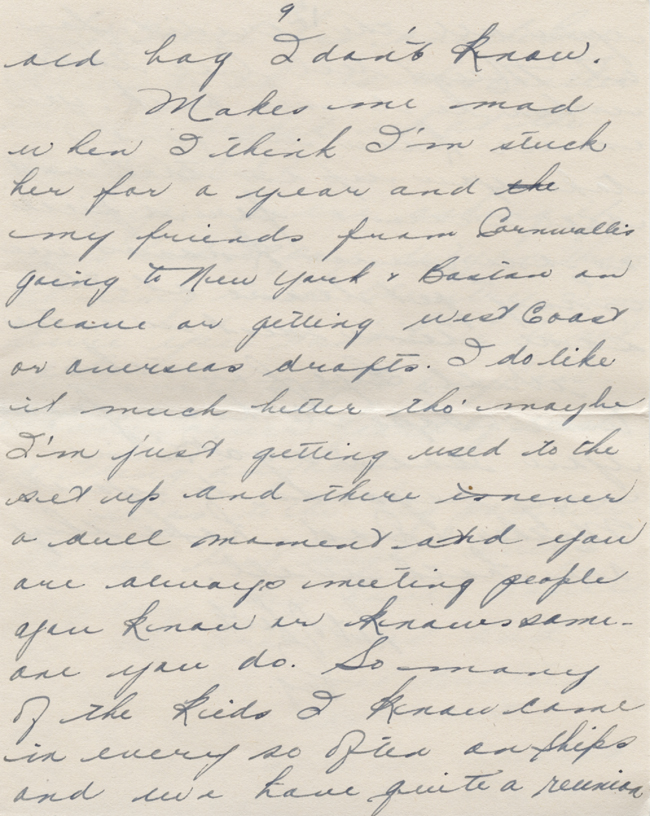 9
old hag I don't know.
Makes me mad
when I think I'm stuck
her for a year and the
my friends from Cornwallis
going to New York & Boston on
leave or getting west Coast
or overseas drafts. I do like
it much better tho' maybe
I'm just getting used to the
set up and there is never
a dull moment and you
are always meeting people
you know or knows some-
one you do. So many
of the kids I know come
in every so often on ships
and we have quite a reunion